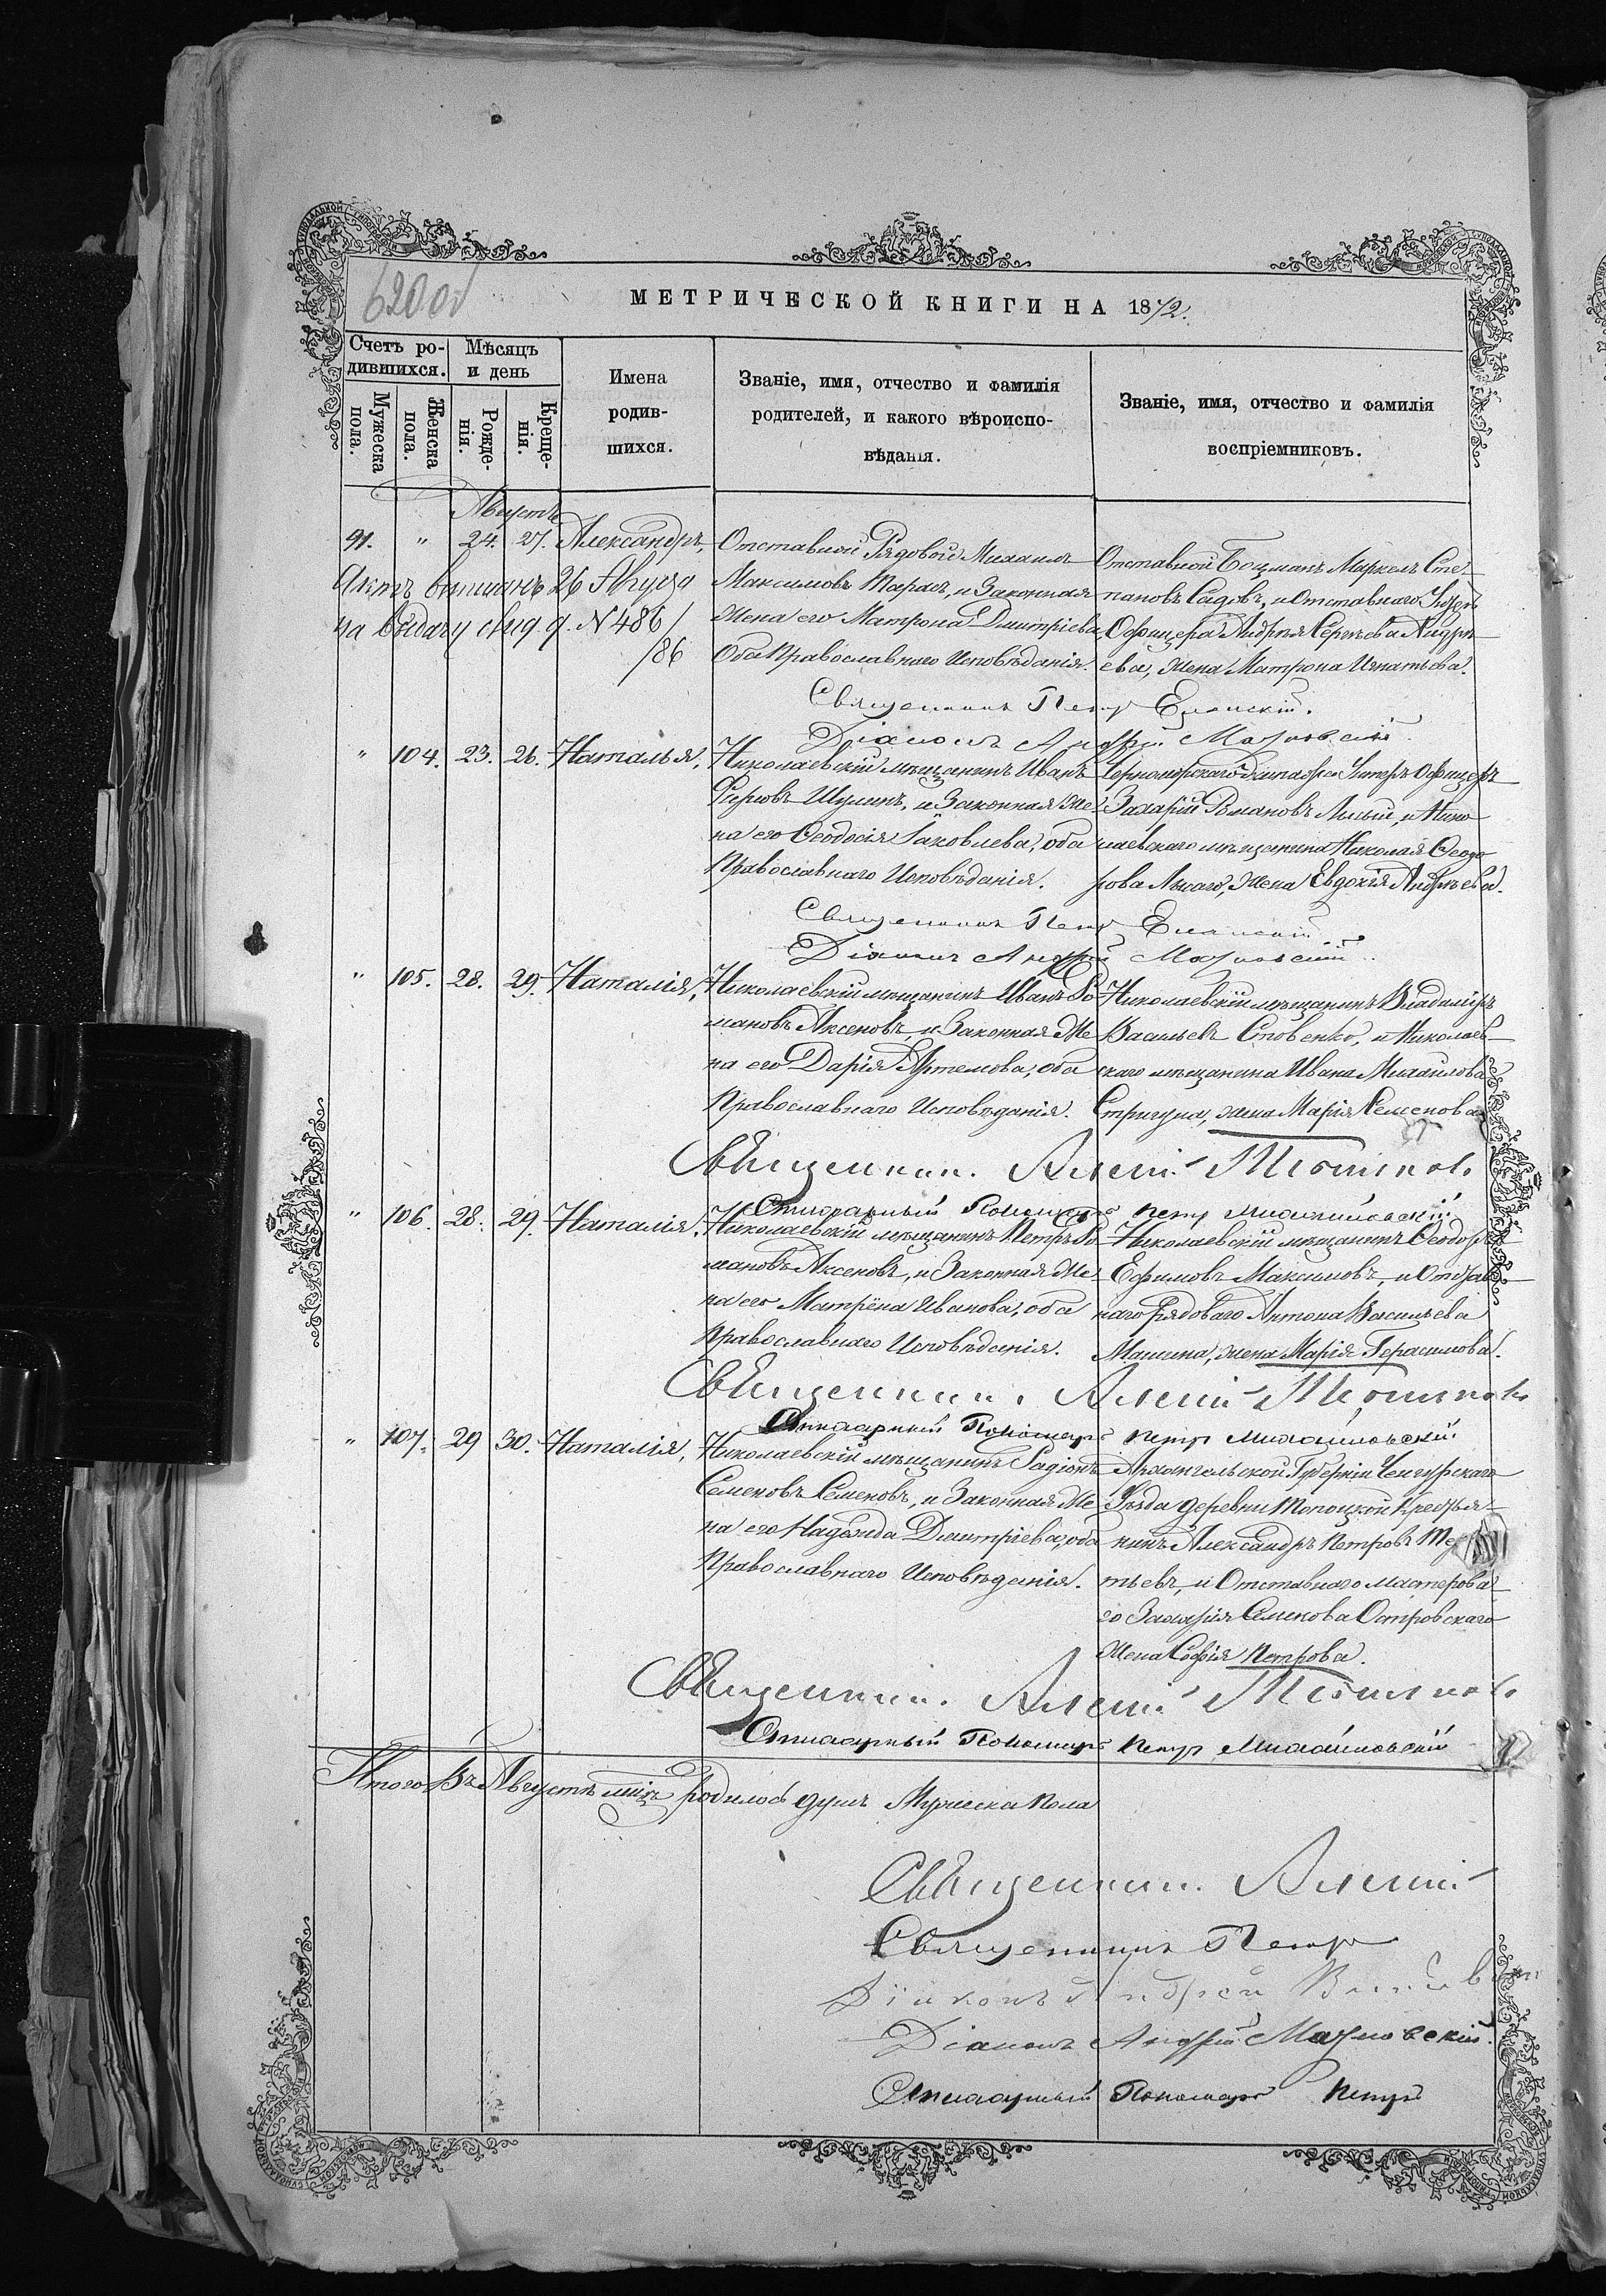 620 об
МЕТРИЧЕСКОЙ КНИГИ НА 1872.
Счетъ ро-
дившихся.
Мѣсяцъ
и день
Мужеска
пола.
Женска
пола.
Рожде-
нія.
Креще-
нія.
Имена
родив-
шихся.
Званіе, имя, отчество и фамилія
родителей, и какого вѣроиспо-
вѣданія.
Званіе, имя, отчество и фамилія
воспріемниковъ.
Августъ
91. " 24. 27. Александръ,
Актъ выписанъ 26 Августа
на выдачу свид. N 486/
/86
Отставной Рядовой Михаилъ
Максимовъ Тарасъ, и Законная
Жена его Матрона Дмитріева
Оба Православнаго Исповѣданія.
Отставной Боцманъ Маркелъ Сте-
пановъ Садовъ, и Отставнаго Унтеръ
Офицера Андрея Сергѣева Андре-
ева, жена Матрона Игнатьева.
Священникъ Петръ Еланскій.
Діаконъ Андрей
" 104. 23. 26. Наталья,
Николаевскій мѣщанинъ Иванъ
Фирсовъ Шулинъ, и Законная Же-
на его Ѳеодосія Іаковлева, оба
Православнаго Исповѣданія.
Черноморскаго Унтеръ Офицеръ
Захарій Романовъ Лысый, и Нико-
лаевскаго мѣщанина Николая Ѳеодо-
рова Лысаго, жена Евдокія Андреева.
Священникъ Петръ Еланскій
Діаконъ Андрей
" 105. 28. 29. Наталія,
Николаевскій мѣщанинъ Иванъ Ро-
мановъ Аксеновъ, и Законная Же-
на его Дарія Артемова, оба
Православнаго Исповѣданія.
Николаевскій мѣщанинъ Владиміръ
Васильевъ Стовенко, и Николаев-
скаго мѣщанина Ивана Михайлова
Стригуна, жена Марія Семенова
Священникъ Алексій
Стихарный Пономарь Петръ Михайловскій
" 106. 28. 29. Наталія,
Николаевскій мѣщанинъ Петръ Ро-
мановъ Аксеновъ, и Законная Же-
на его Матрёна Иванова, оба
Православнаго Исповѣданія.
Николаевскій мѣщанинъ Ѳеодоръ
Ефимовъ Максимовъ, и Отстав-
наго Рядоваго Антона Васильева
Машина, жена Марія Герасимова.
Священникъ Алексій
Стихарный Пономарь Петръ Михайловскій
" 107. 29 30. Наталія,
Николаевскій мѣщанинъ Радіонъ
Семеновъ Семеновъ, и Законная Же-
на его Надежда Дмитріева, оба
Православнаго Исповѣданія.
Архангельской Губерніи
Уѣзда деревни Топоцкой Крестья-
нинъ Александръ Петровъ
тьевъ, и Отставнаго мастерова-
го Захарія Семенова Островскаго
Жена Софія Петрова.
Священникъ Алексій
Стихарный Пономарь Петръ Михайловскій
Итого Въ Августѣ мѣцѣ родилось душъ Мужеска Пола
Священникъ Алексій
Священникъ Петръ
Діаконъ Андрей
Діаконъ Андрей
Стихарный Пономарь Петръ